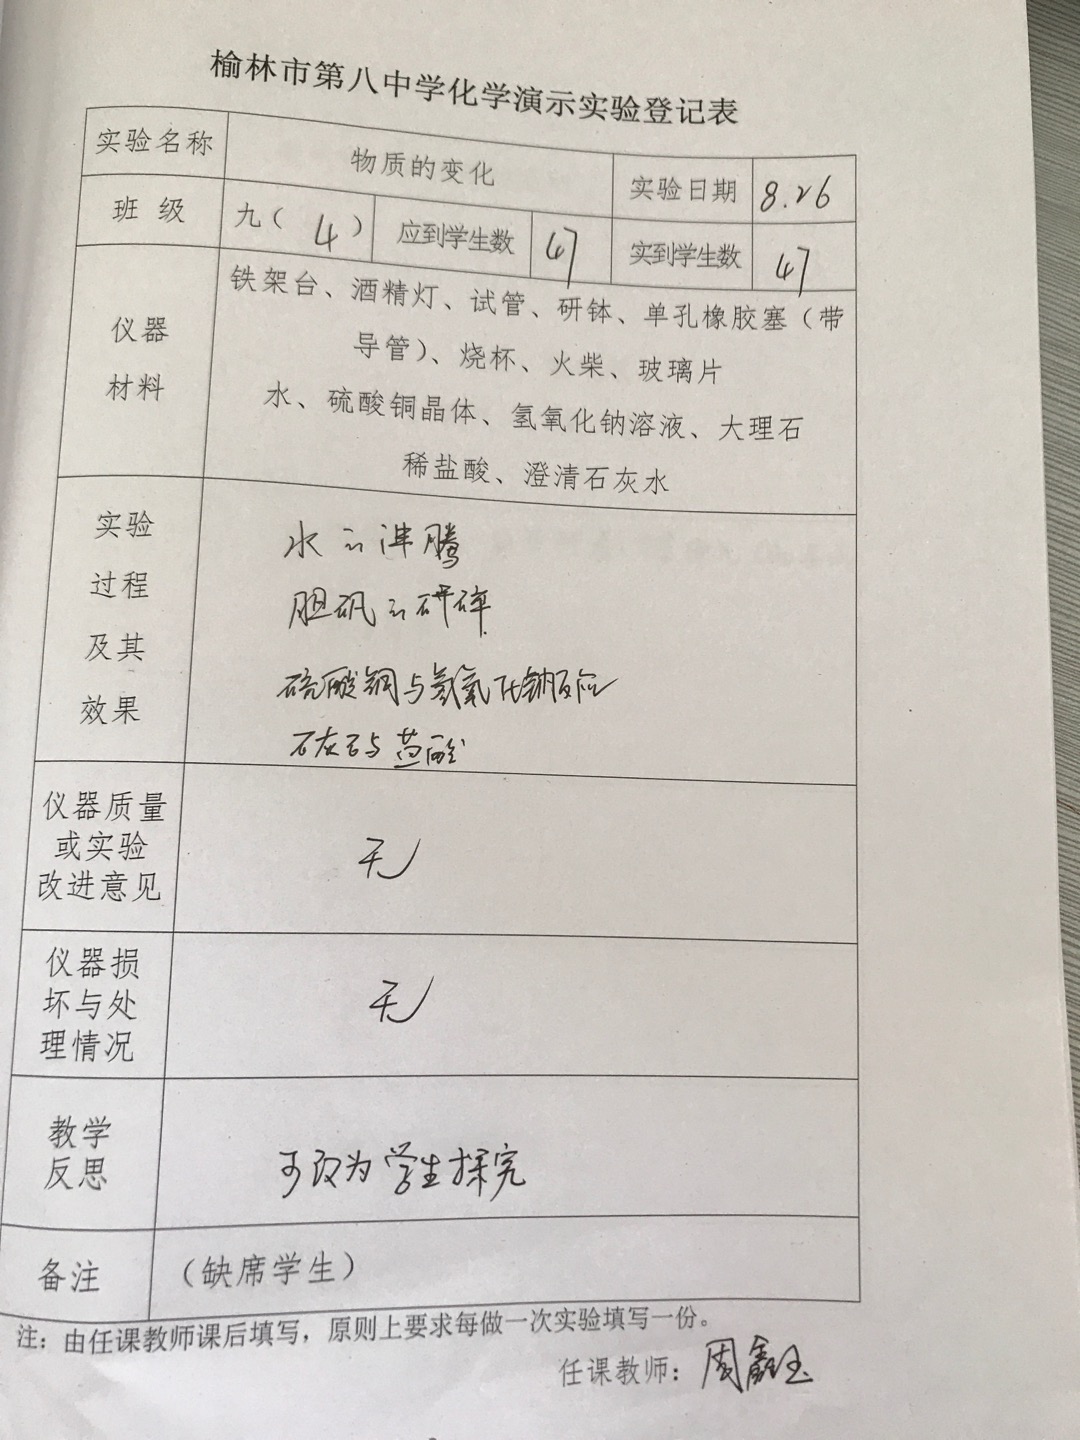 榆林市第八中学化学演示实验登记表
实验名称 物质的变化 实验日期 8.26
班 级 九（ 4 ） 应到学生数 47 实到学生数 47
仪器
材料
铁架台、酒精灯、试管、研钵、单孔橡胶塞（带
导管）、烧杯、火柴、玻璃片
水、硫酸铜晶体、氢氧化钠溶液、大理石
稀盐酸、澄清石灰水
实验
过程
及其
效果
水的沸腾
胆矾的研碎
硫酸铜与氢氧化钠反应
石灰石与盐酸
仪器质量
或实验
改进意见
无
仪器损
坏与处
理情况
无
教学
反思
可改为学生探究
备注 （缺席学生）
注：由任课教师课后填写，原则上要求每做一次实验填写一份。
任课教师：周鑫玉